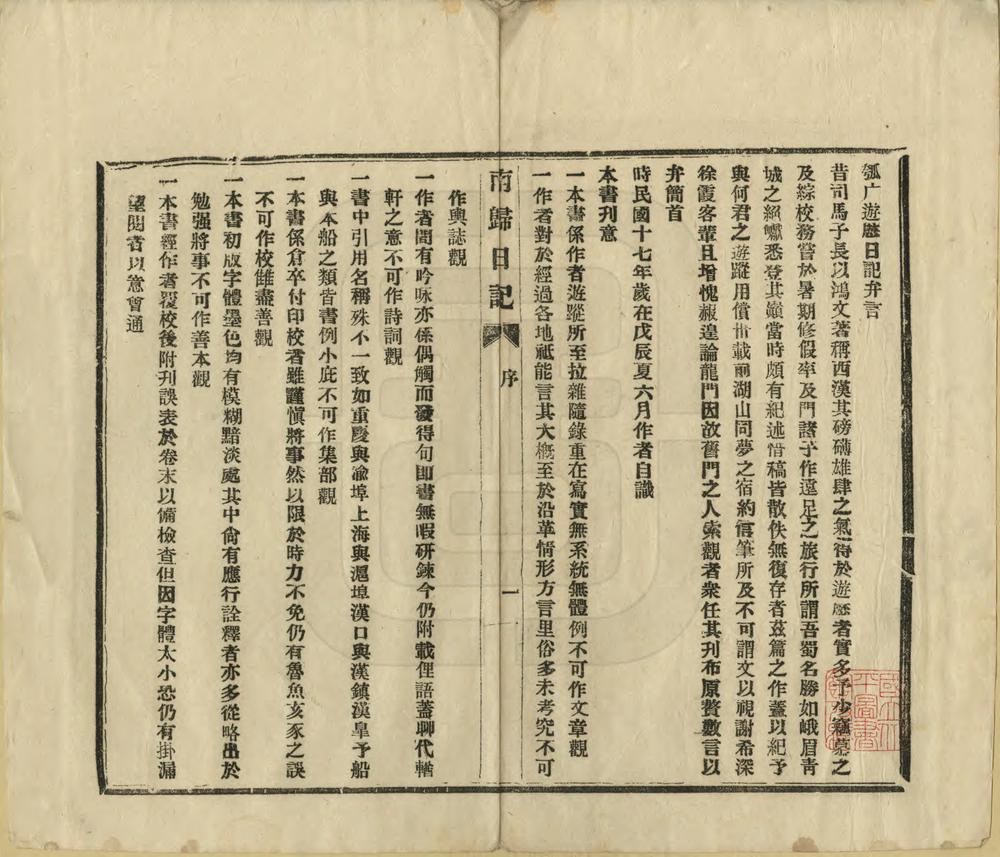 瓠广遊歷日記弁言
昔司馬子長以鴻文著稱西漢其磅礴雄肆之氣得於遊歷者實多予少竊慕之
及綜校務嘗於暑期修假率及門諸子作遠足之旅行所謂吾蜀名勝如峨眉青
城之絕巘悉登其巔當時頗有紀述惜稿皆散佚無復存者茲篇之作蓋以紀予
與何君之遊蹤用償卅載前湖山同夢之宿約信筆所及不可謂文以視謝希深
徐霞客輩且增愧赧遑論龍門因故舊門之人索觀者衆任其刊布原贅數言以
弁簡首
時民國十七年歲在戊辰夏六月作者自識
本書刊意
一本書係作者遊蹤所至拉雜隨錄重在寫實無系統無體例不可作文章觀
一作者對於經過各地祗能言其大概至於沿革情形方言里俗多未考究不可
南歸日記 序 一
作輿誌觀
一作者間有吟咏亦係偶觸而發得句即書無暇研鍊今仍附載俚語蓋聊代輶
軒之意不可作詩詞觀
一書中引用名稱殊不一致如重慶與渝埠上海與滬埠漢口與漢鎮漢皐予船
與本船之類皆書例小疵不可作集部觀
一本書係倉卒付印校者雖謹慎將事然以限於時力不免仍有魯魚亥豕之誤
不可作校雠盡善觀
一本書初版字體墨色均有模糊黯淡處其中尙有應行詮釋者亦多從略出於
勉强將事不可作善本觀
一本書經作者覆校後附刊誤表於卷末以備檢查但因字體太小恐仍有掛漏
望閱者以意會通